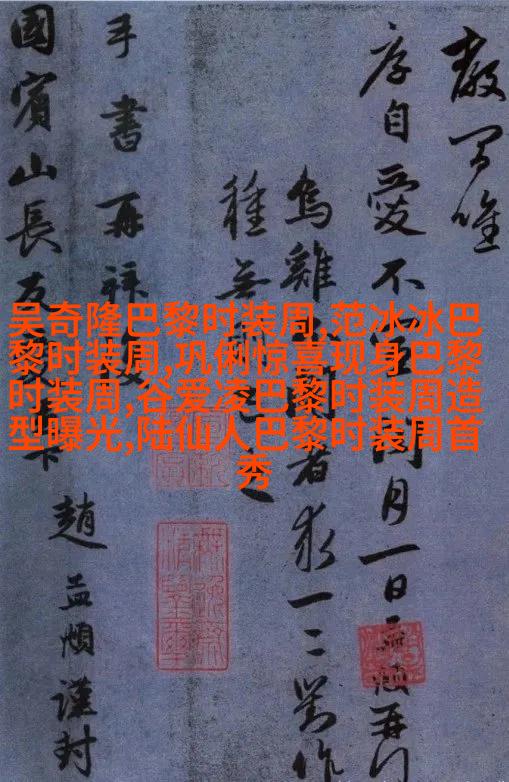 唯
序自愛不宣 月一日孟頫再
烏雞 者求一二對作
種無 之
手書再拜
國賓山長
趙孟頫謹封
吴奇隆巴黎时装周,范冰冰巴
黎时装周,巩俐惊喜现身巴黎
时装周,谷爱凌巴黎时装周造
型曝光,陆仙人巴黎时装周首
秀